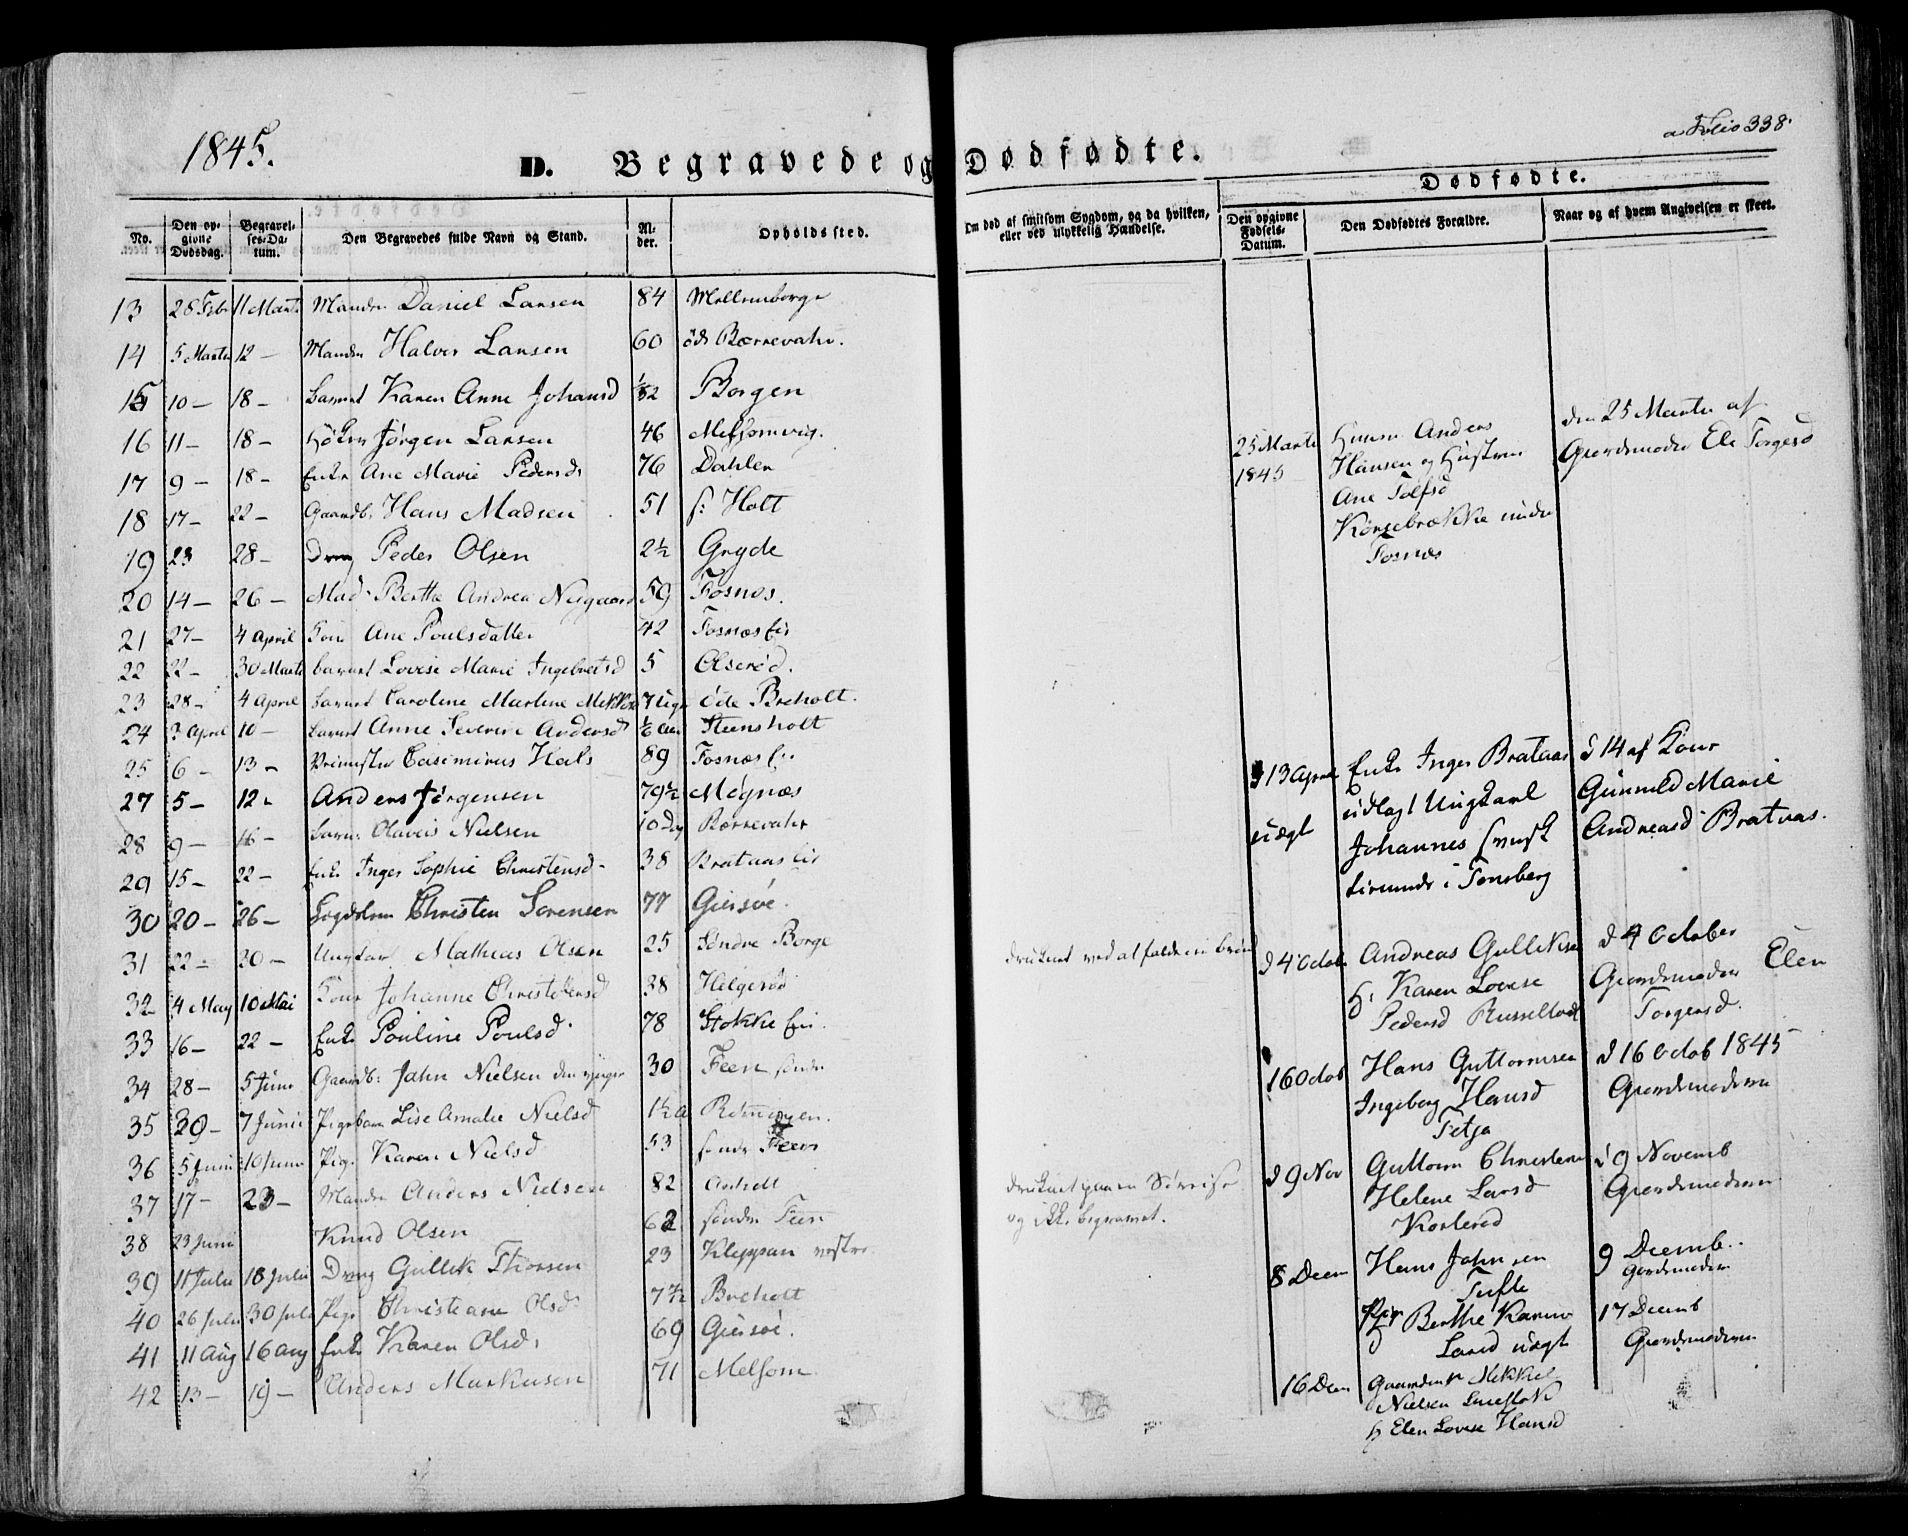 1845.
a Folio 338.
D. Begravede og Dødfødte.
Dødfødte.
No. Den opgivne Dødsdag. Begravelses-Datum. Den Begravedes fulde Navn og Stand. Alder. Opholdssted.
Om død af smitsom Sygdom, og da hvilken, eller ved ulykkelig Hændelse. Den opgivne Fødsels-Datum. Den Dødfødtes Forældre. Naar og af hvem Angivelsen er skeet.
13 28 Febr 11 Marts Manden Daniel Larsen 84 Mellemborge
14 5 Marts 12 — Manden Halvor Larsen 60 øde Bærrevahr.
15 10 — 18 — Barnet Karen Anne Johansd Borgen
16 11 — 18 — Jørgen Larsen 46 Melsomvig.
17 9 — 18 — Enke Ane Marie Pedersd 76 Dahlen
18 17 — 22 — Gaardb. Hans Madsen 51 s: Holt
19 23 28 — Dreng Peder Olsen 2½ Gryde
20 14 — 26 — Mad. Berthe Andrea Neigaard 59 Fosnæs.
21 27 — 4 April Kone Ane Poulsdatter 42 Fosnæs Eie
22 22 — 30 Marts barnet Lovise Marie Ingebretsd 5 Olserød.
23 28 — 4 April barnet Caroline Martine 7 Uger Øde Breholt.
24 3 April 10 — barnet Anne Severine Andersd Steensholt
25 6 — 13 — Casimirus Hals 89 Fosnæs Eie
27 5 — 12 — Anders Jørgensen 79½ Møgnæs
28 9 — 16 — Barn: Olavus Nielsen 10 Dag Børrevahr
29 15 — 22 — Enke Inger Sophie Christensd — 38 Brataas Eie
30 20 — 26 — Christen Sørensen 77 Giersøe.
31 22 — 20 — Ungkarl Mathias Olsen 25 Søndre Borge
32 4 May 10 Mai Kone Johanne Christophersd 38 Helgerød
33 16 — 22 — Enke Pouline Poulsd. 78 Stokke Eie.
34 28 — 5 Juni Gaardb: Jahn Nielsen den yngre 30 Feen søndre
35 29 — 7 Junii Pigebarn Lise Amalie Nielsd 1½ a
36 5 Juni 10 Juni Pige Karen Nielsd 53 søndre Feen
37 17 — 23 — Manden Anders Nielsen 82 Anholt
38 23 Juni Knud Olsen 62 søndre Feen
39 11 Julii 18 Julii Dreng Gullik Thorsen 23 Kleppan vestre
40 26 Julii 30 Julii Pige Christiane Olsd 7½ Breholt
41 11 Aug 16 Aug Enke Karen Olsd. 69 Giersøe.
42 13 — 19 — Anders Markusen 71 Melsom
druknet ved at falde i en brønd
og ikke begravet.
25 Marts
1845
Huusm. Anders
Hansen og Hustrue
Ane Tolfsd
Kørsebrække under
Fosnæs
den 25 Marts af
Giordemoder Ele Torgersd
d 13 April
uægt
Enke Inger Brataas
udlagt Ungkarl
Johannes
i Tønsberg
d 14 af Kone
Gunnild Marie
Andreasd Brataas.
d 4 Octob
Andreas Gulliksen
H. Karen Lovise
Pedersd
d 4 October
Giordemoder Elen
Torgersd.
16 Octob
Hans Guttormsen
Ingeborg Hansd
Tetja
d 16 Octob 1845
Giordemoderen
d 9 Nov
Guttorm Christens
Helene Larsd
Korterød
d 9 Novemb
Giordemoderen
8 Decem
Hans Johnsen
Tufte
9 Decemb.
Gordemoderen
Pige Berthe Karine
Larsd uægt
17 Decemb
Giordemoderen
16 Decem
Gaardmd Mikkel
Nielsen
H Elen Lovise Hansd